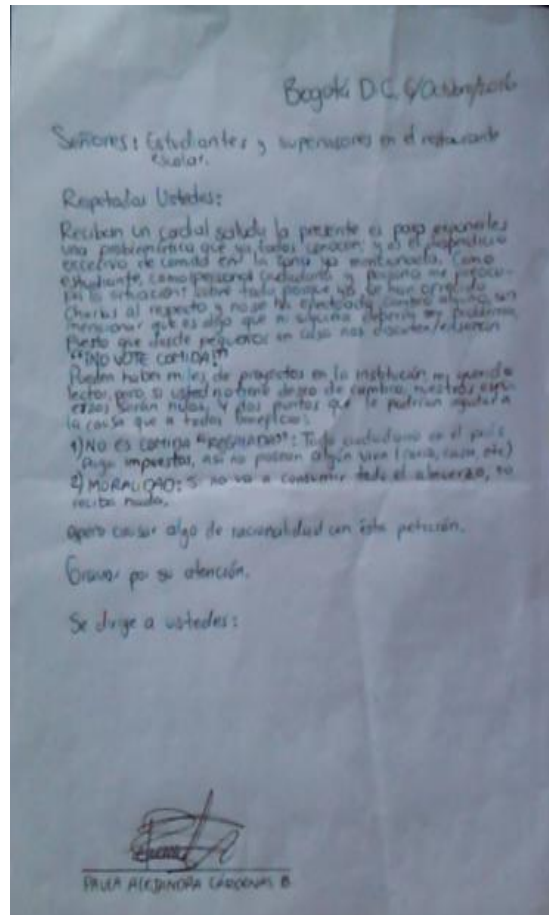 Bogotá D.C. 6/Octubre/2016
Señores: Estudiantes y supervisores en el restaurante
escolar.
Respetados Ustedes:
Reciban un cordial saludo la presente es para exponerles
una problemática que ya todos conocen y es el desperdicio
excesivo de comida en la zona ya mencionada. Como
estudiante, como personal ciudadano y me preocu-
pa la situación sobre todo porque ya se han
charlas al respecto y no se ha efectuado cambio alguno, sin
mencionar que es algo que a alguien debería ser problema,
puesto que desde pequeños en casa nos
"¡NO VOTE COMIDA!"
Pueden haber miles de proyectos en la institución mi querido
lector, pero si usted no tiene deseo de cambio, nuestros esfu-
erzos serán nulos. Y dos puntos que le podrían ayudar a
la causa que a todos beneficia:
1) NO ES COMIDA "REGALADA": Todo ciudadano en el país
paga impuestos, así no posean algún bien (carro, casa, etc)
2) MORALIDAD: Si no va a consumir todo el almuerzo, no
reciba nada.
espero causar algo de racionalidad con ésta petición.
Gracias por su atención.
Se dirige a ustedes:
PAULA ALEJANDRA CÁRDENAS B